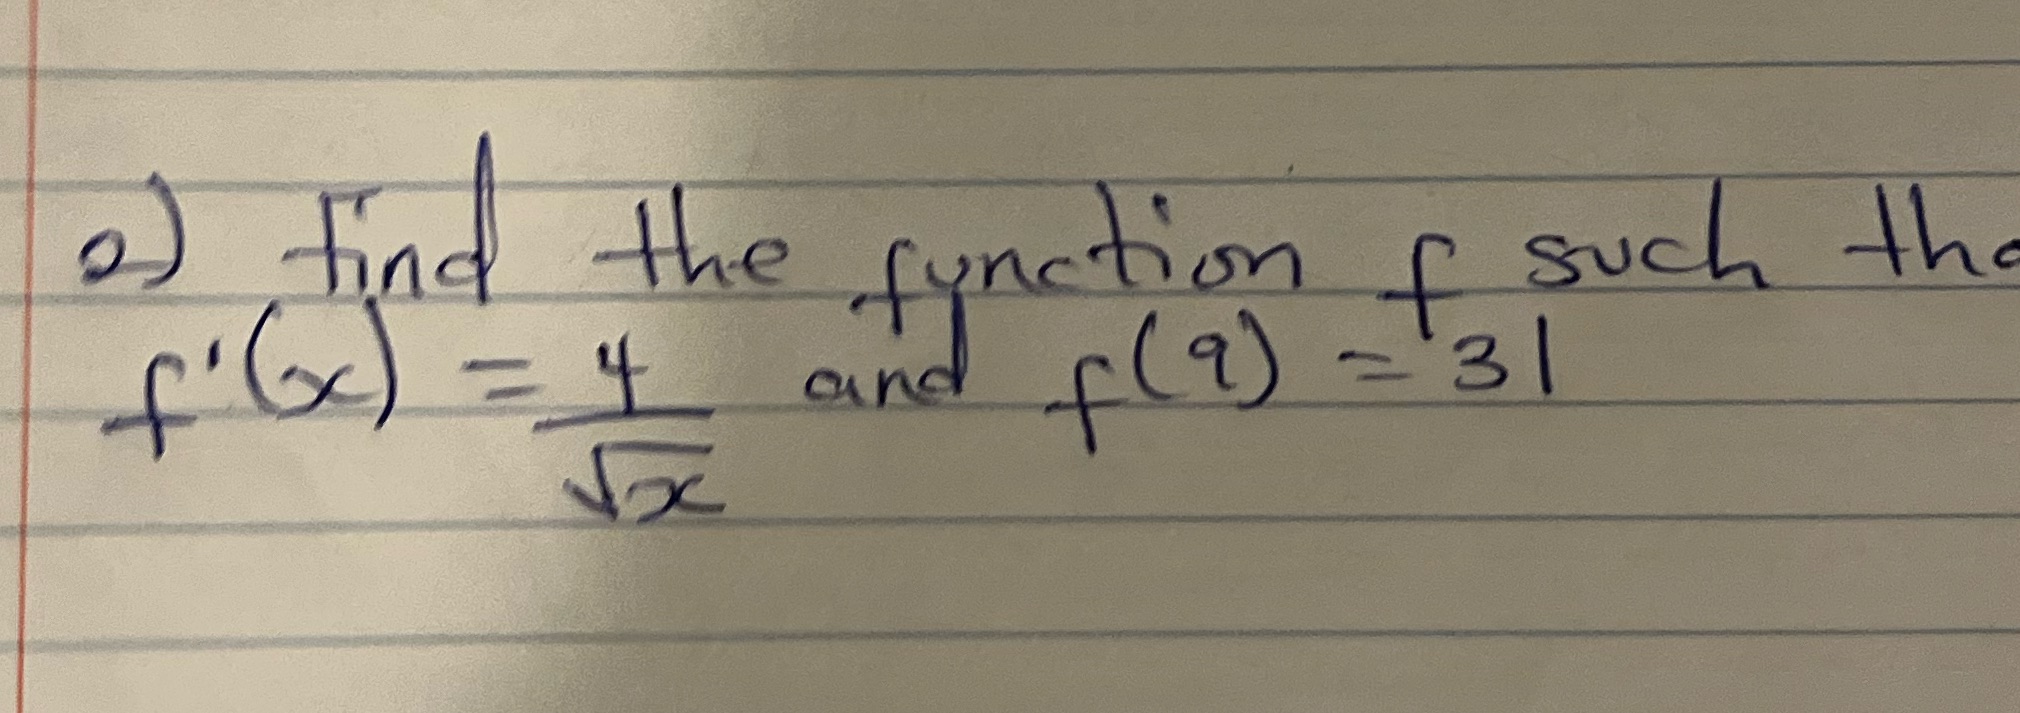 a) find the function f such tha
f'(x) = 4/√x and f(9) = 31